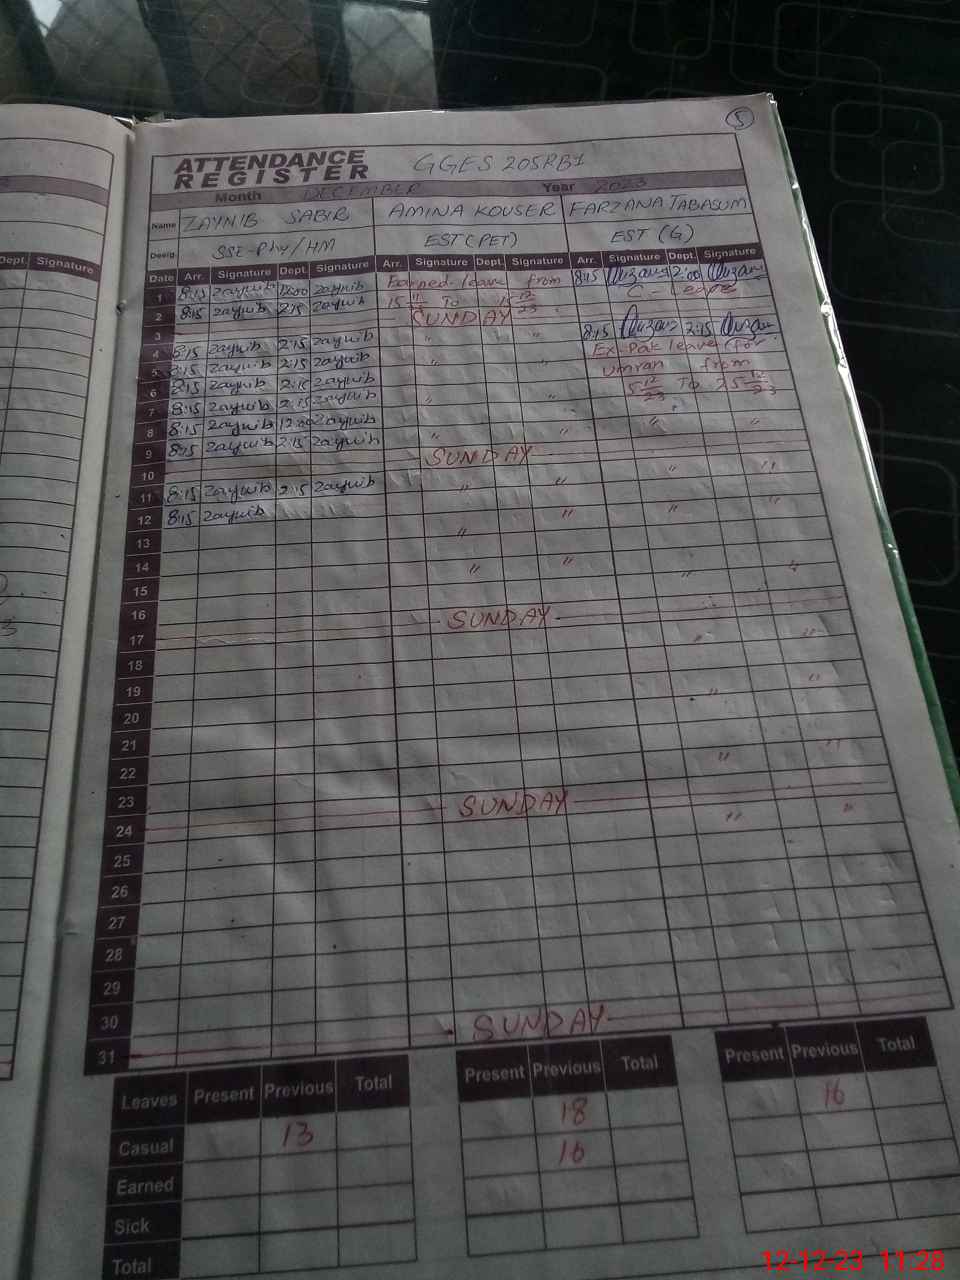 5
ATTENDANCE REGISTER GGES 205RB1
Month DECEMBER Year 2023
Name ZAYNIB SABIR AMINA KOUSER FARZANA TABASUM
Desig SSE-Phy/HM EST (PET) EST (G)
Dept. Signature
Date Arr. Signature Dept. Signature Arr. Signature Dept. Signature Arr. Signature Dept. Signature
1 8:15 zaynib 12:00 zaynib Earned leave from 8:15 2:00
2 8:15 zaynib 2:15 zaynib 15 11/23 To 15 12/23 C - leave
3 SUNDAY
4 8:15 zaynib 2:15 zaynib " " 8:15 2:15
5 8:15 zaynib 2:15 zaynib " " Ex-Pak leave (for
6 8:15 zaynib 2:15 zaynib umrah from
7 8:15 zaynib 2:15 zaynib " " 5 12/23 To 25 12/23
8 8:15 zaynib 12:00 zaynib " "
9 8:15 zaynib 2:15 zaynib " "
10 SUNDAY
11 8:15 zaynib 2:15 zaynib " " " "
12 8:15 zaynib " " " "
13
14 " " " "
15
16
17 SUNDAY " "
18
19 " "
20
21
22 " "
23
24 SUNDAY " "
25
26
27
28
29
30
31 SUNDAY
Leaves Present Previous Total Present Previous Total Present Previous Total
Casual 13 18 16
Earned 16
Sick
Total
12-12-23 11:28